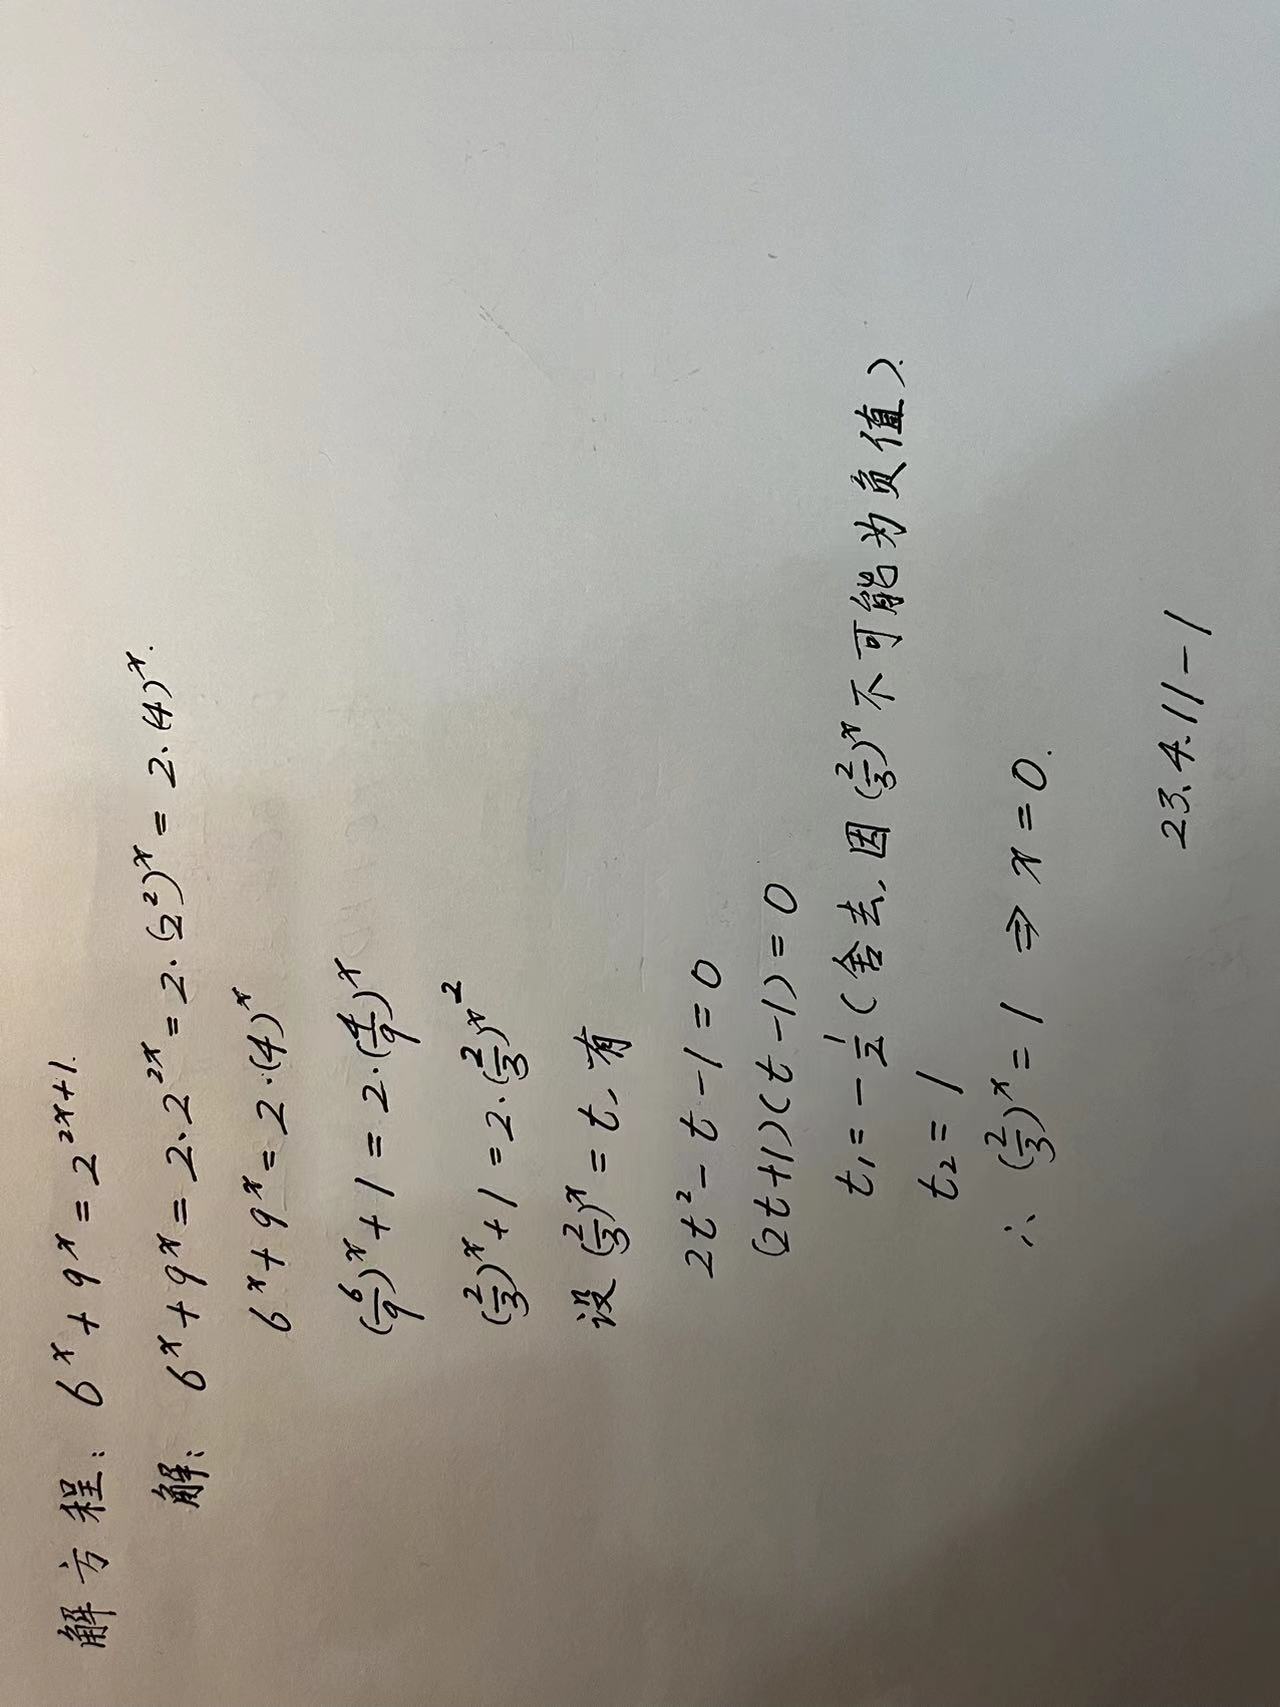 解方程: 6^x + 9^x = 2^{2x+1}.
解: 6^x + 9^x = 2·2^{2x} = 2·(2^2)^x = 2·(4)^x.
6^x + 9^x = 2·(4)^x
(6/9)^x + 1 = 2·(4/9)^x
(2/3)^x + 1 = 2·(2/3)^{x^2}
设 (2/3)^x = t, 有
2t^2 - t - 1 = 0
(2t+1)(t-1) = 0
t₁ = -1/2 (舍去, 因 (2/3)^x 不可能为负值).
t₂ = 1
∴ (2/3)^x = 1 ⇒ x = 0.
23.4.11-1